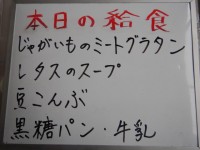 本日の給食
じゃがいものミートグラタン
レタスのスープ
豆こんぶ
黒糖パン・牛乳